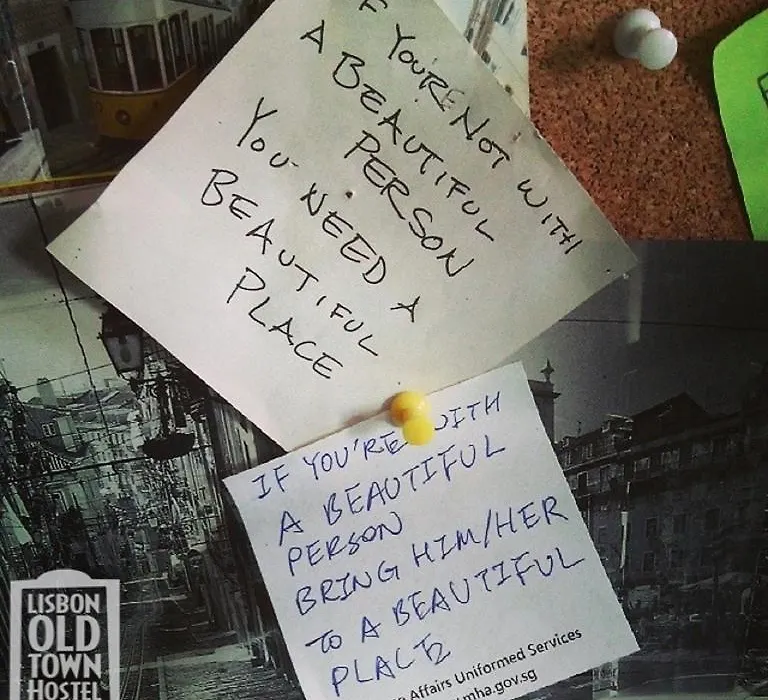 F YOU'RE NOT WITH
A BEAUTIFUL
PERSON
YOU NEED A
BEAUTIFUL
PLACE
IF YOU'RE WITH
A BEAUTIFUL
PERSON
BRING HIM/HER
TO A BEAUTIFUL
PLACE
Affairs Uniformed Services
mha.gov.sg
LISBON
OLD
TOWN
HOSTEL